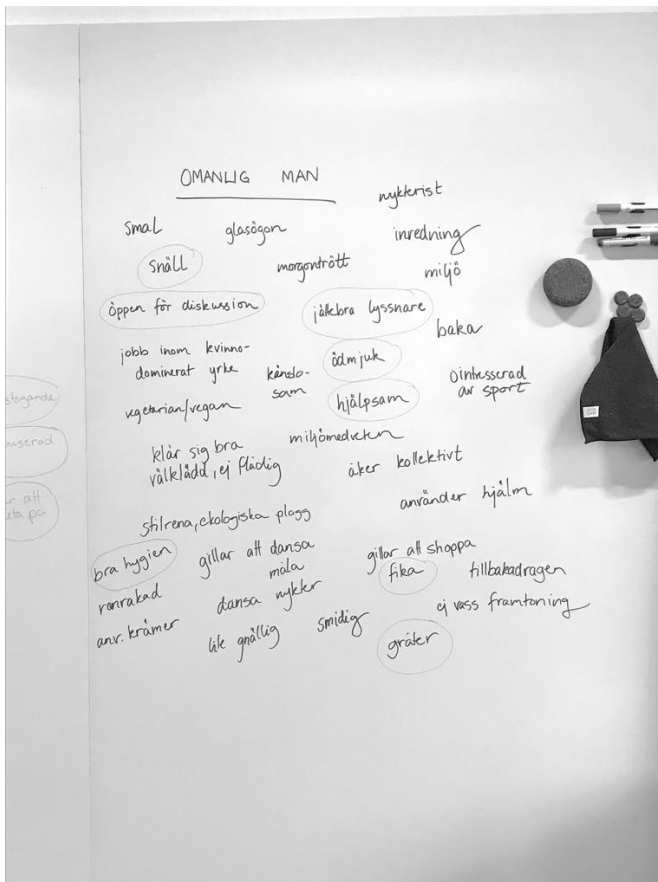 OMANLIG MAN
nykterist
smal
glasögon
inredning
snäll
morgontrött
miljö
öppen för diskussion
jättebra lyssnare
baka
jobb inom kvinno-
dominerat yrke
känslo-
sam
ödmjuk
ointresserad
av sport
vegetarian/vegan
hjälpsam
klär sig bra
välklädd, ej flådig
miljömedveten
åker kollektivt
använder hjälm
stilrena, ekologiska plagg
bra hygien
gillar att dansa
måla
gillar att shoppa
fika
tillbakadragen
renrakad
dansa nykter
ej vass framtoning
anv. krämer
lite gnällig
smidig
gråter
ar att